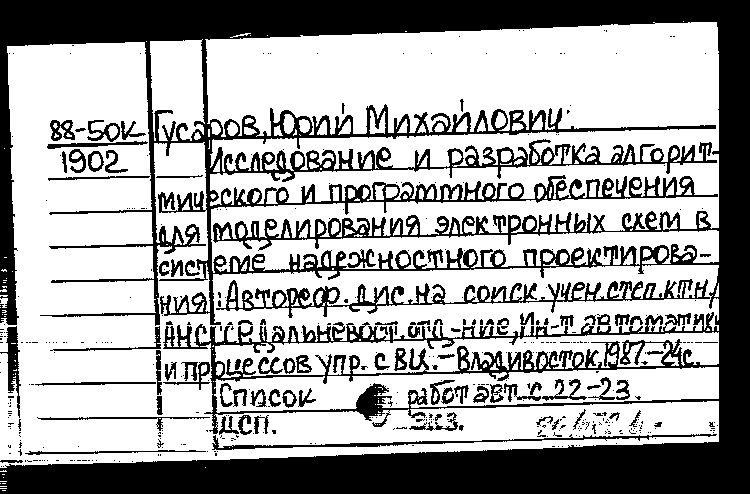 88-50К Гусаров, Юрий Михайлович.
1902 Исследование и разработка алгорит-
мического и программного обеспечения
для моделирования электронных схем в
системе надежностного проектирова-
ния: Автореф. дис. на соиск. учен. степ. к.т.н. /
АН СССР, Дальневост. отд-ние, Ин-т автоматики
и процессов упр. с ВЦ. - Владивосток, 1987. - 24 с.
Список работ авт. с. 22-23.
ДСП. экз.